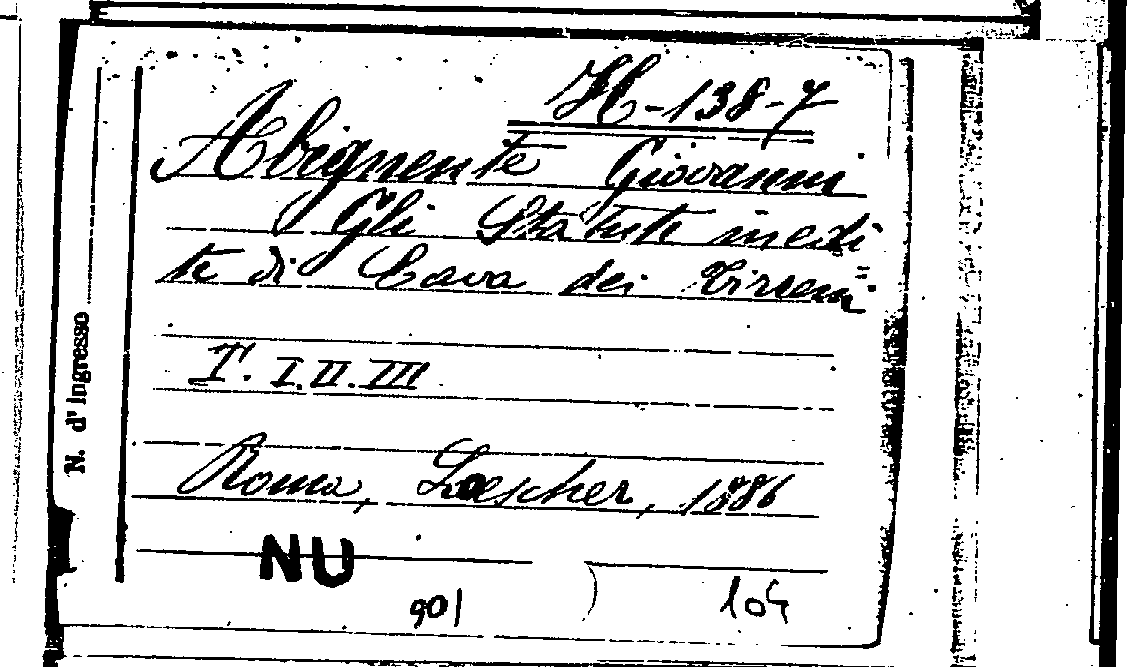 H-138-7
Abignente Giovanni
Gli Statuti inedi
ti di Cava dei Tirreni
T. I. II. III
Roma, Loescher, 1886
N. d'Ingresso
NU
901 ) 104